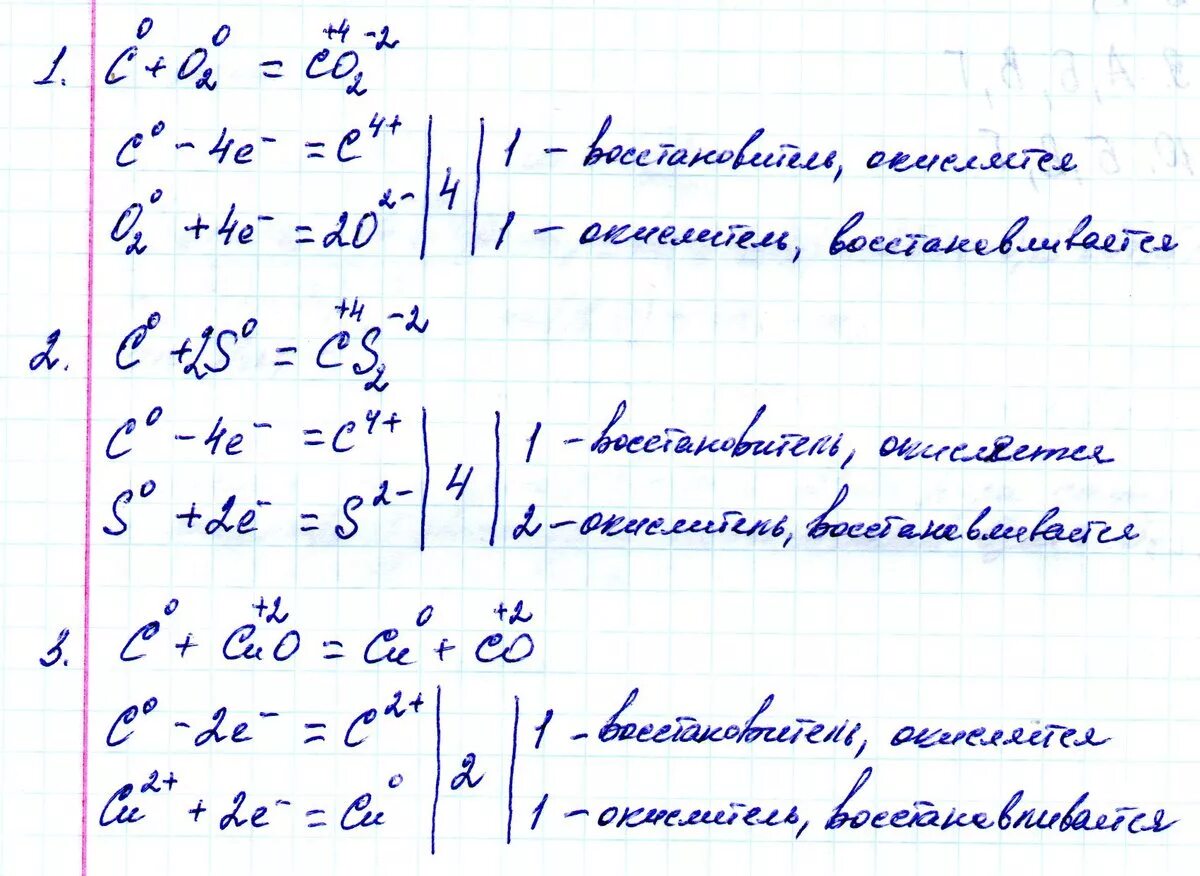 1. C⁰ + O₂⁰ = C⁺⁴O₂⁻²
C⁰ - 4e⁻ = C⁴⁺ | 4 | 1 - восстановитель, окисляется
O₂⁰ + 4e⁻ = 2O²⁻ | 1 - окислитель, восстанавливается
2. C⁰ + 2S⁰ = C⁺⁴S₂⁻²
C⁰ - 4e⁻ = C⁴⁺ | 4 | 1 - восстановитель, окисляется
S⁰ + 2e⁻ = S²⁻ | 2 - окислитель, восстанавливается
3. C⁰ + Cu⁺²O = Cu⁰ + C⁺²O
C⁰ - 2e⁻ = C²⁺ | 2 | 1 - восстановитель, окисляется
Cu²⁺ + 2e⁻ = Cu⁰ | 1 - окислитель, восстанавливается